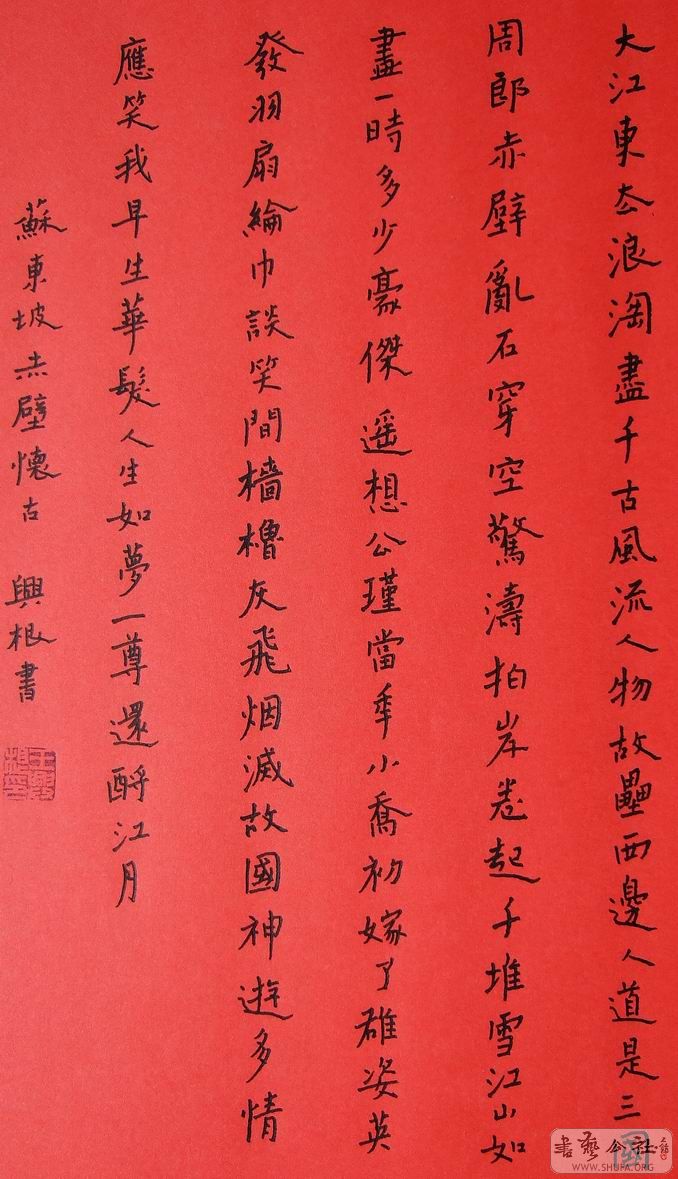 大江東去浪淘盡千古風流人物故壘西邊人道是三國
周郎赤壁亂石穿空驚濤拍岸卷起千堆雪江山如
畫一時多少豪傑遥想公瑾當年小喬初嫁了雄姿英
發羽扇綸巾談笑間檣櫓灰飛烟滅故國神遊多情
應笑我早生華髮人生如夢一尊還酹江月
蘇東坡赤壁懷古 興根書
書藝公社
WWW.SHUFA.ORG